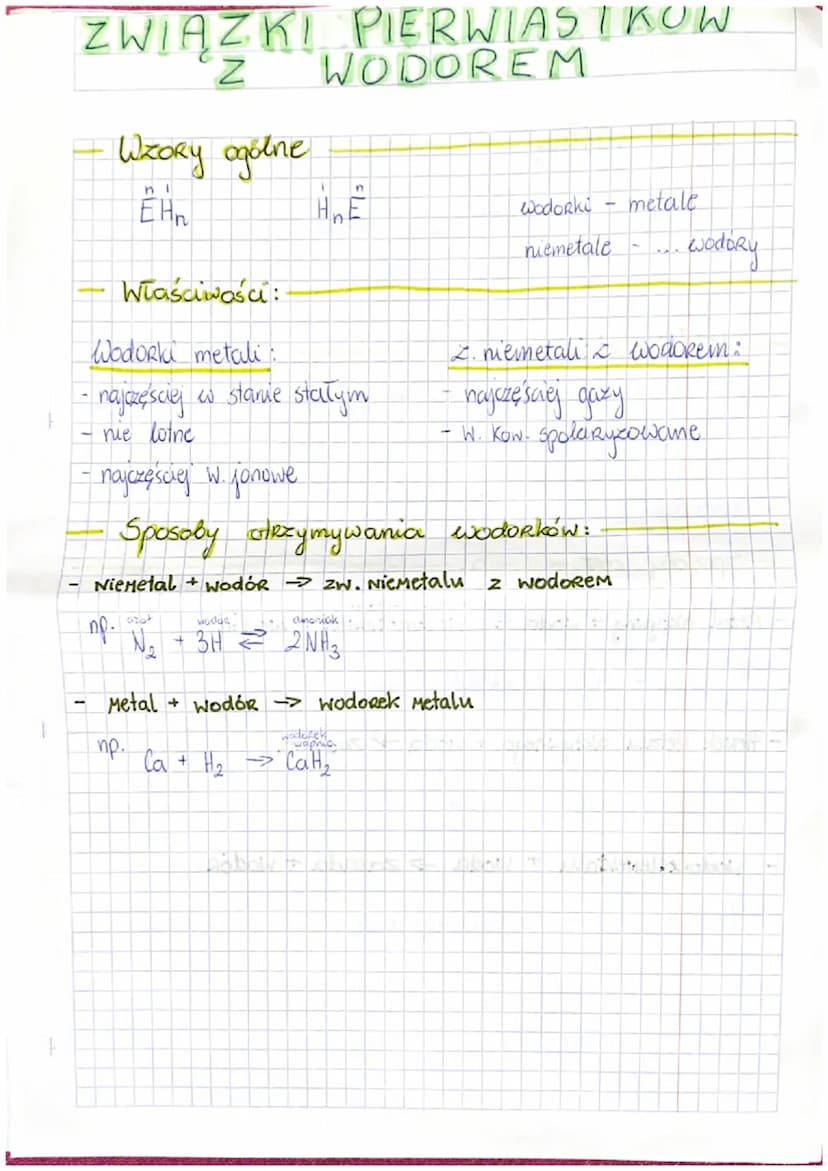 ZWIĄZKI PIERWIASTKÓW
Z WODOREM
- Wzory ogólne
n I
EHn
I n
HnE
wodorki - metale
niemetale - ... wodory
- Właściwości:
Wodorki metali:
- najczęściej w stanie stałym
- nie lotne
- najczęściej w. jonowe
z. niemetali z wodorem:
- najczęściej gazy
- w. kow. spolaryzowane
- Sposoby otrzymywania wodorków:
- Niemetal + wodór → zw. niemetalu z wodorem
azot wodór amoniak
np. N₂ + 3H ⇄ 2NH₃
- Metal + wodór → wodorek metalu
wodorek
wapnia
np. Ca + H₂ → CaH₂